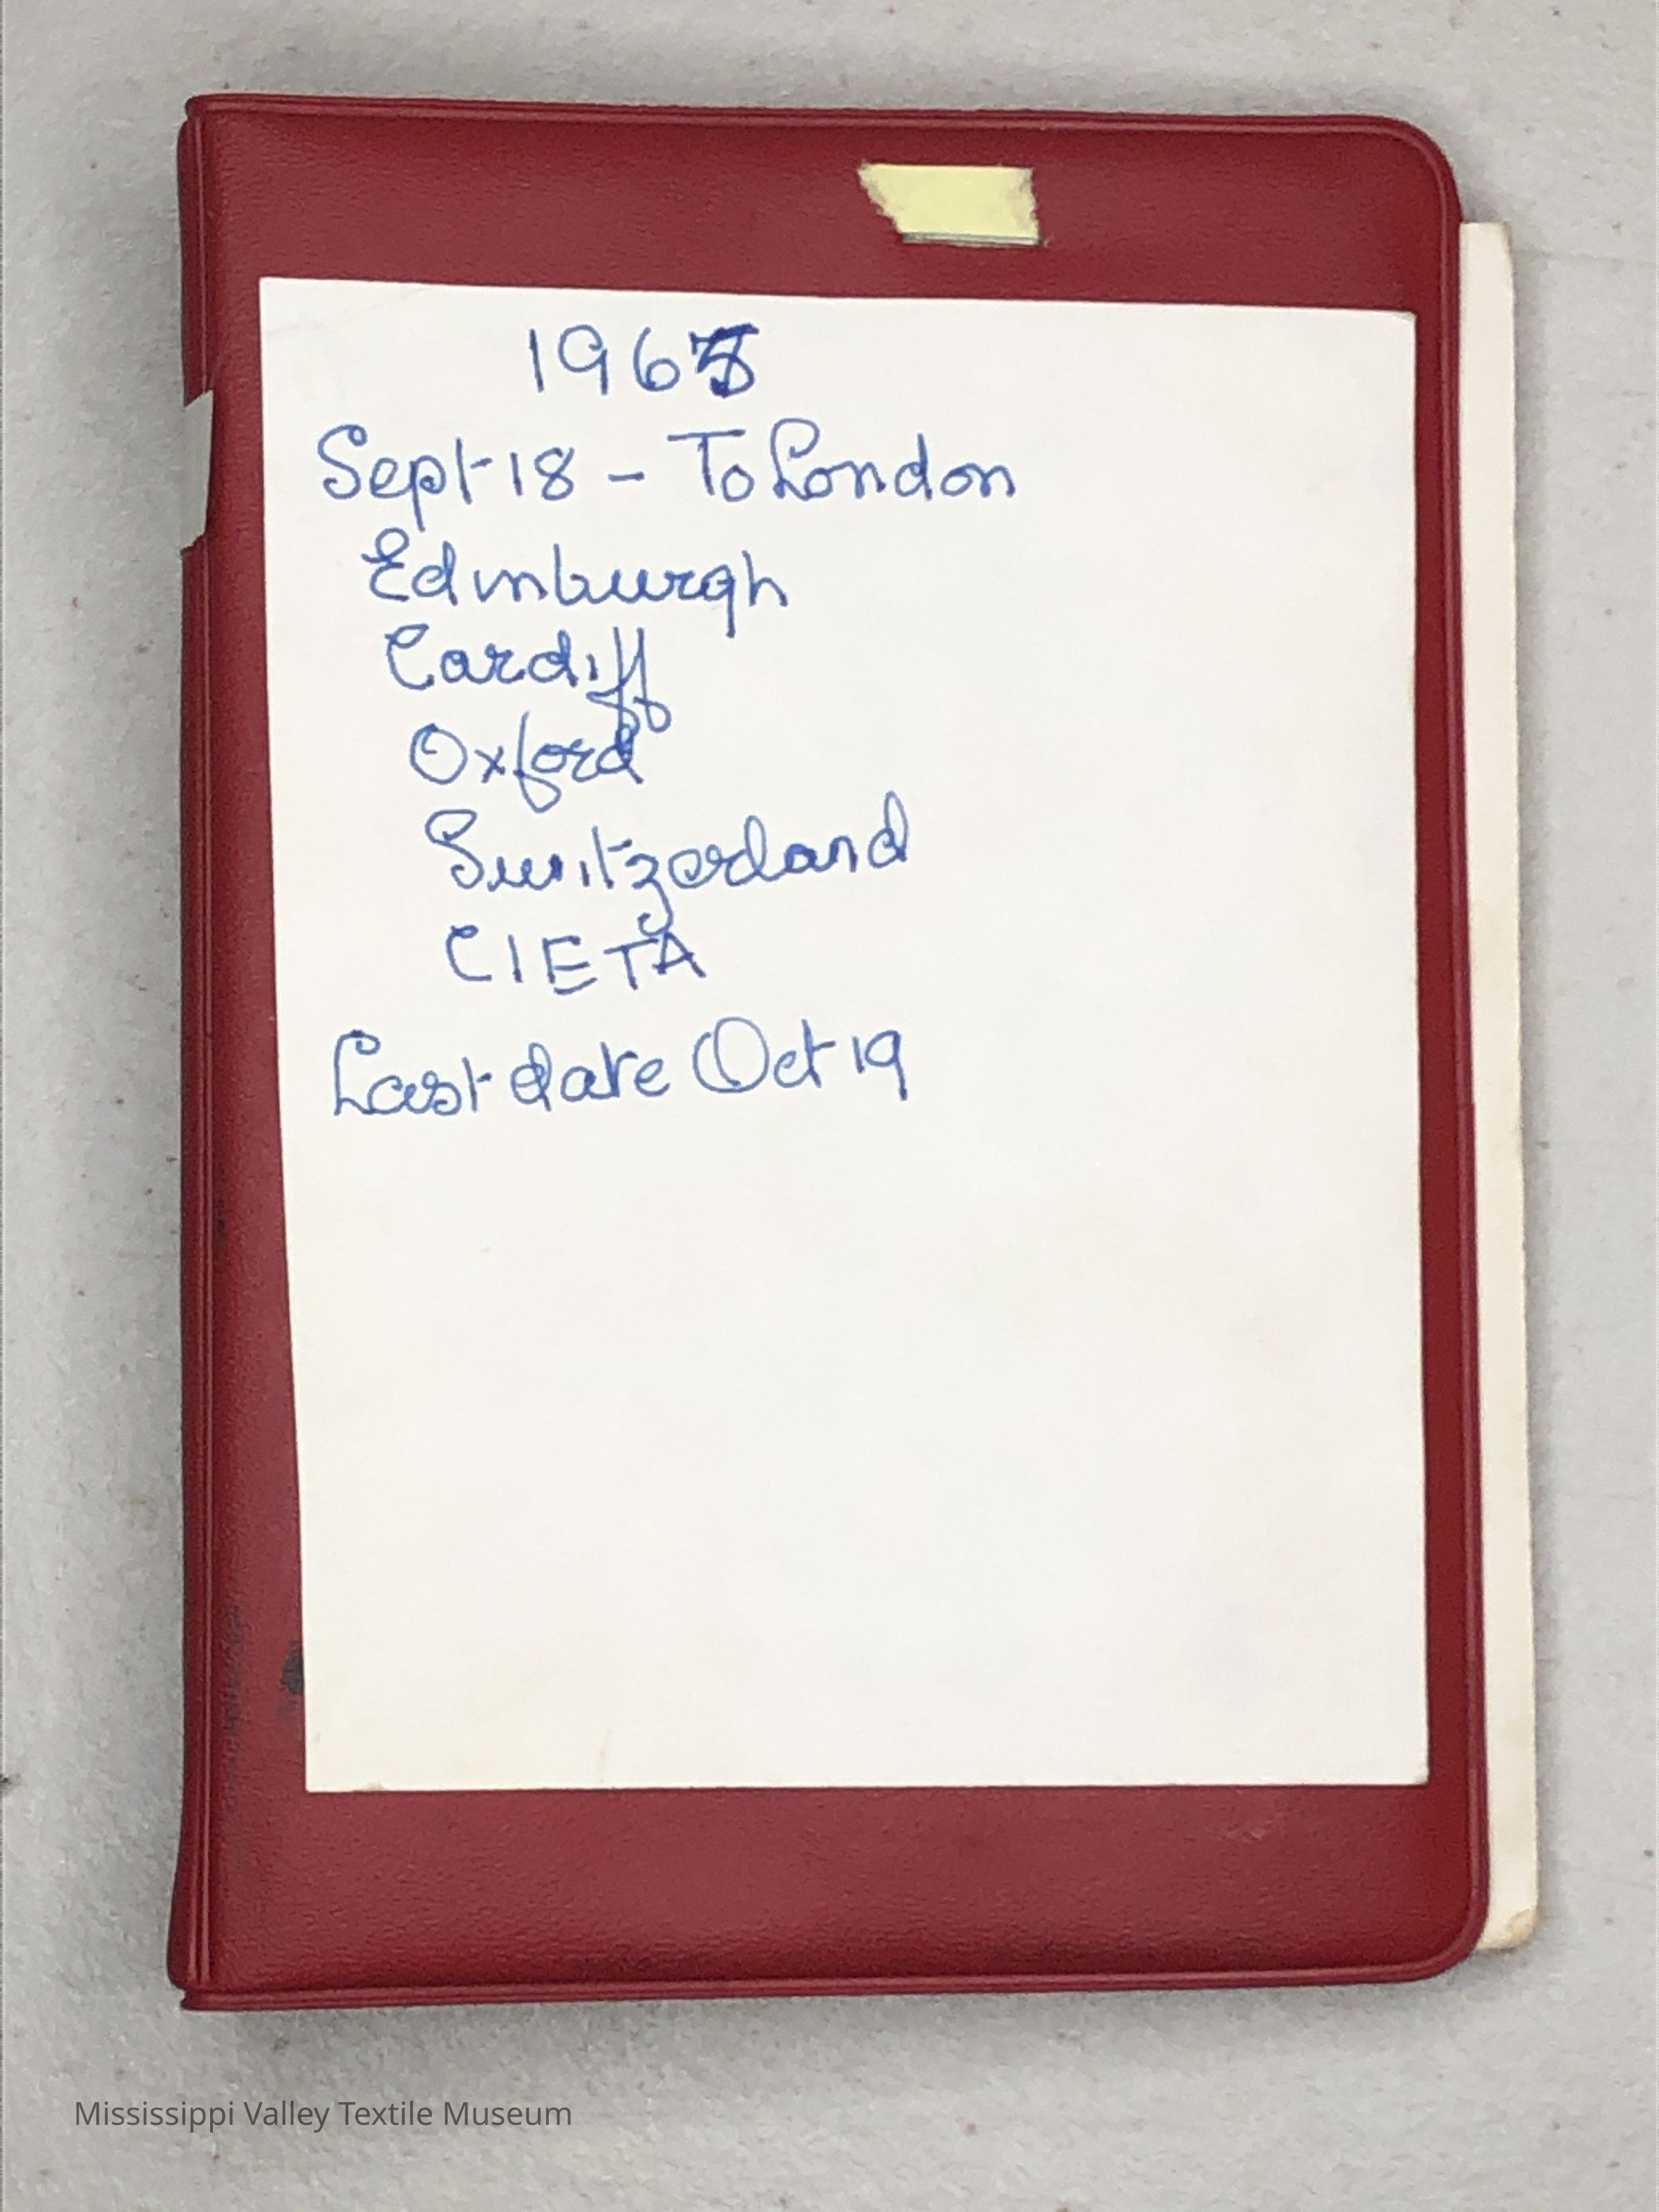 196
Sept 18 - To London
Edinburgh
Cardiff
Oxford
Switzerland
CIETA
Last date Oct 19
Mississippi Valley Textile Museum